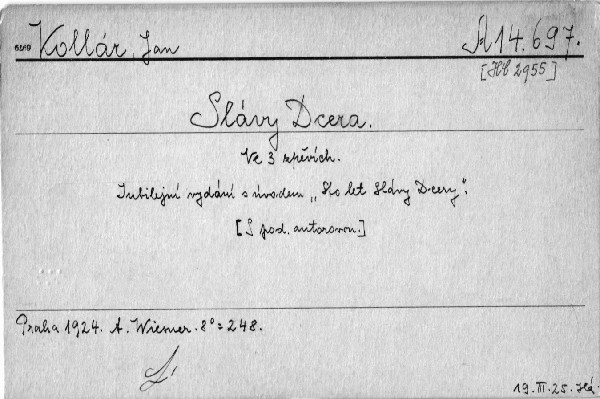 Kollár, Jan
A 14.697.
[Hb 2955]
Slávy Dcera.
Ve 3 zpěvích.
Jubilejní vydání s úvodem „Sto let Slávy Dcery“.
[S pod. autorovou.]
Praha 1924. A. Wiesner. 8° = 248.
19.III.25. Há